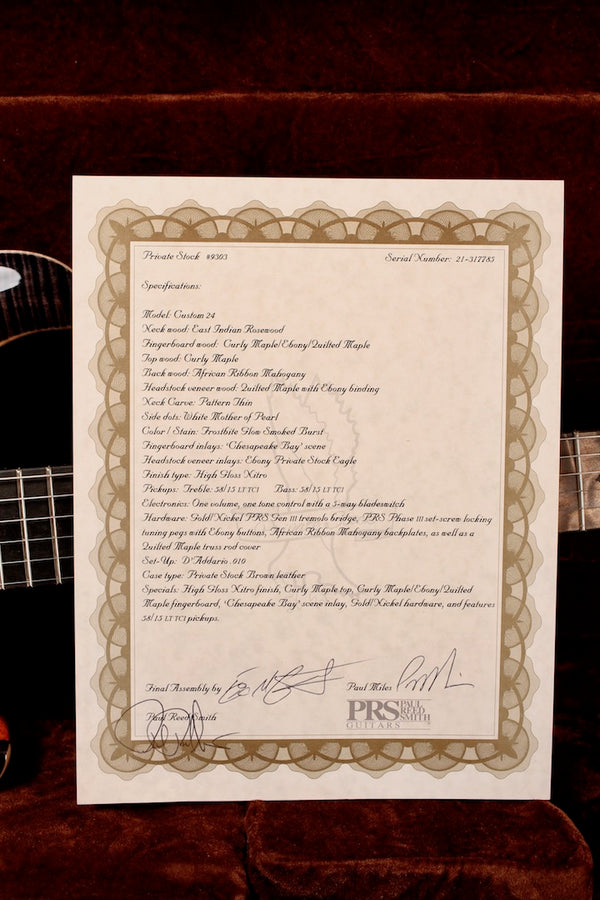 Private Stock #9303
Serial Number: 21-317785
Specifications:
Model: Custom 24
Neck wood: East Indian Rosewood
Fingerboard wood: Curly Maple/Ebony/Quilted Maple
Top wood: Curly Maple
Back wood: African Ribbon Mahogany
Headstock veneer wood: Quilted Maple with Ebony binding
Neck Carve: Pattern Thin
Side dots: White Mother of Pearl
Color / Stain: Frostbite Glow Smoked Burst
Fingerboard inlays: ‘Chesapeake Bay’ scene
Headstock veneer inlays: Ebony Private Stock Eagle
Finish type: High Gloss Nitro
Pickups: Treble: 58/15 LT TCI Bass: 58/15 LT TCI
Electronics: One volume, one tone control with a 5-way bladeswitch
Hardware: Gold/Nickel PRS Gen III tremolo bridge, PRS Phase III set-screw locking
tuning pegs with Ebony buttons, African Ribbon Mahogany backplates, as well as a
Quilted Maple truss rod cover
Set-Up: D'Addario .010
Case type: Private Stock Brown leather
Specials: High Gloss Nitro finish, Curly Maple top, Curly Maple/Ebony/Quilted
Maple fingerboard, ‘Chesapeake Bay’ scene inlay, Gold/Nickel hardware, and features
58/15 LT TCI pickups.
Final Assembly by
Paul Miles
Paul Reed Smith
PRS PAUL REED SMITH
GUITARS